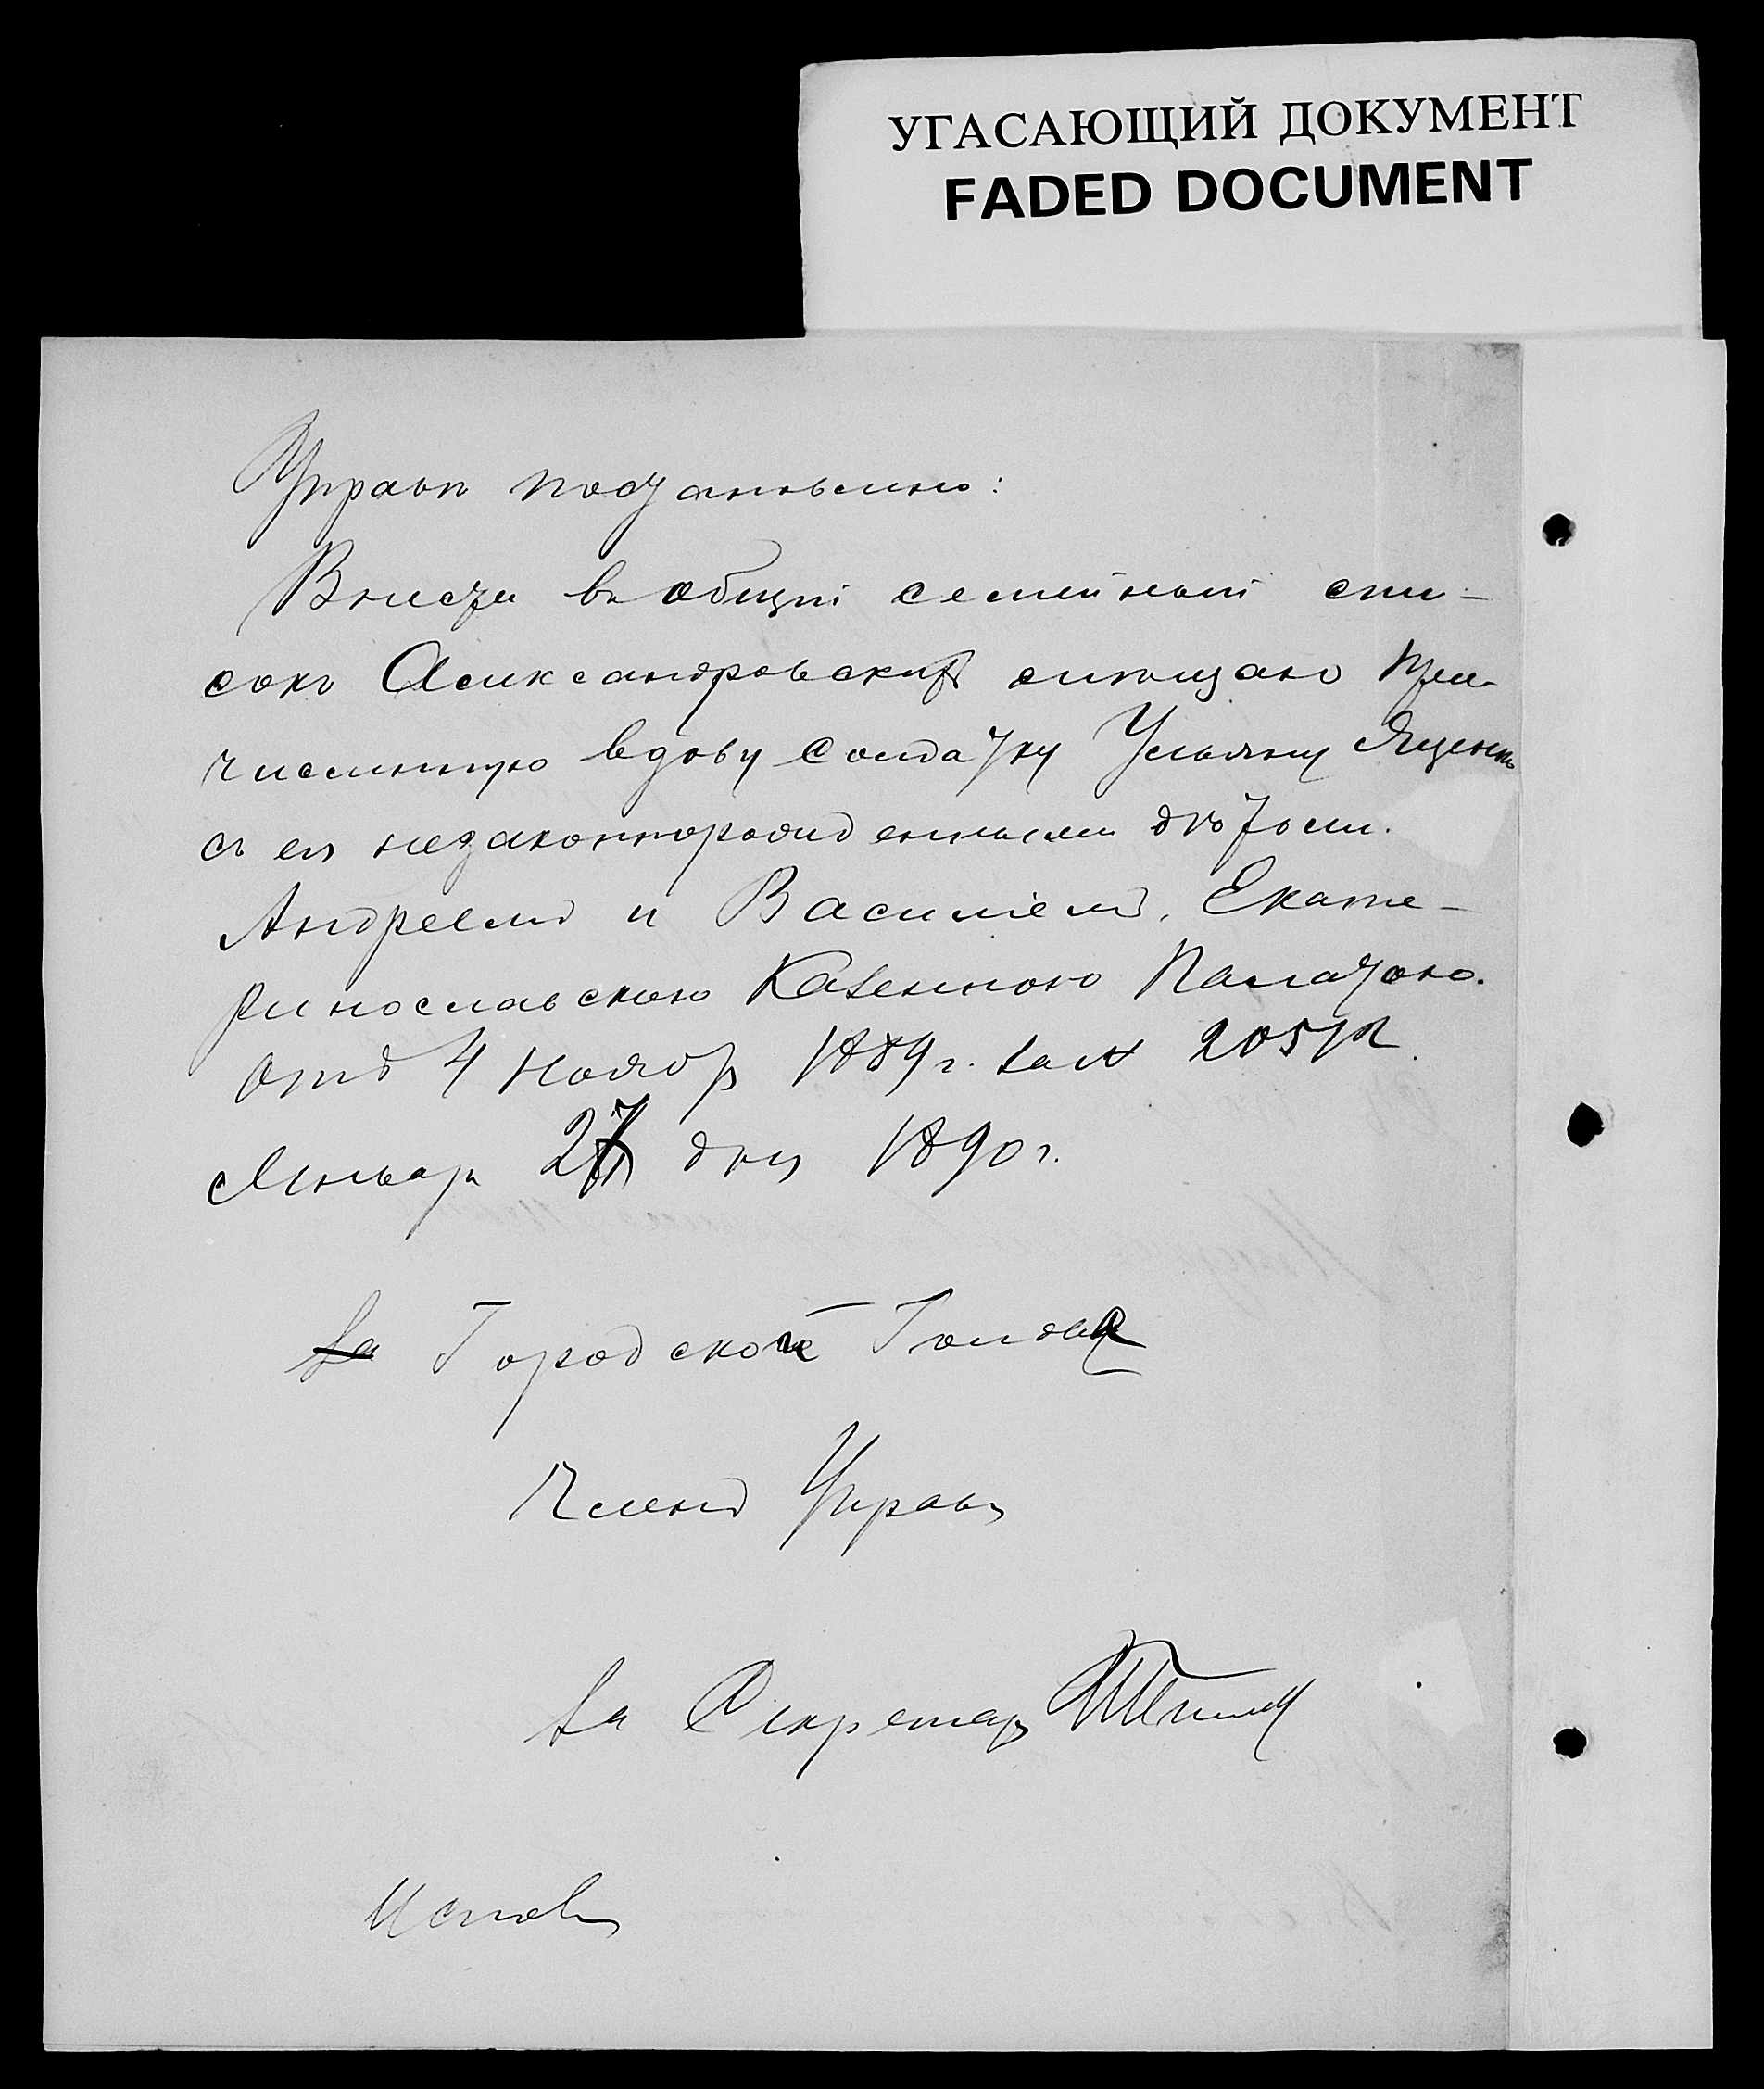 УГАСАЮЩИЙ ДОКУМЕНТ
FADED DOCUMENT
Управа постановила:
Внести въ общій семейный спи-
сокъ Александровскихъ мѣщанъ при
численную вдову солдатку Ульяну Яценко
съ ея незаконнорожденными дѣтьми
Андреемъ и Василіемъ, Екате-
ринославскою Казенною Палатою.
отъ 4 Ноябр 1889 г. за №
Январ 27 дня 1890 г.
За Городской Голова
Членъ Управы
За Секретаря